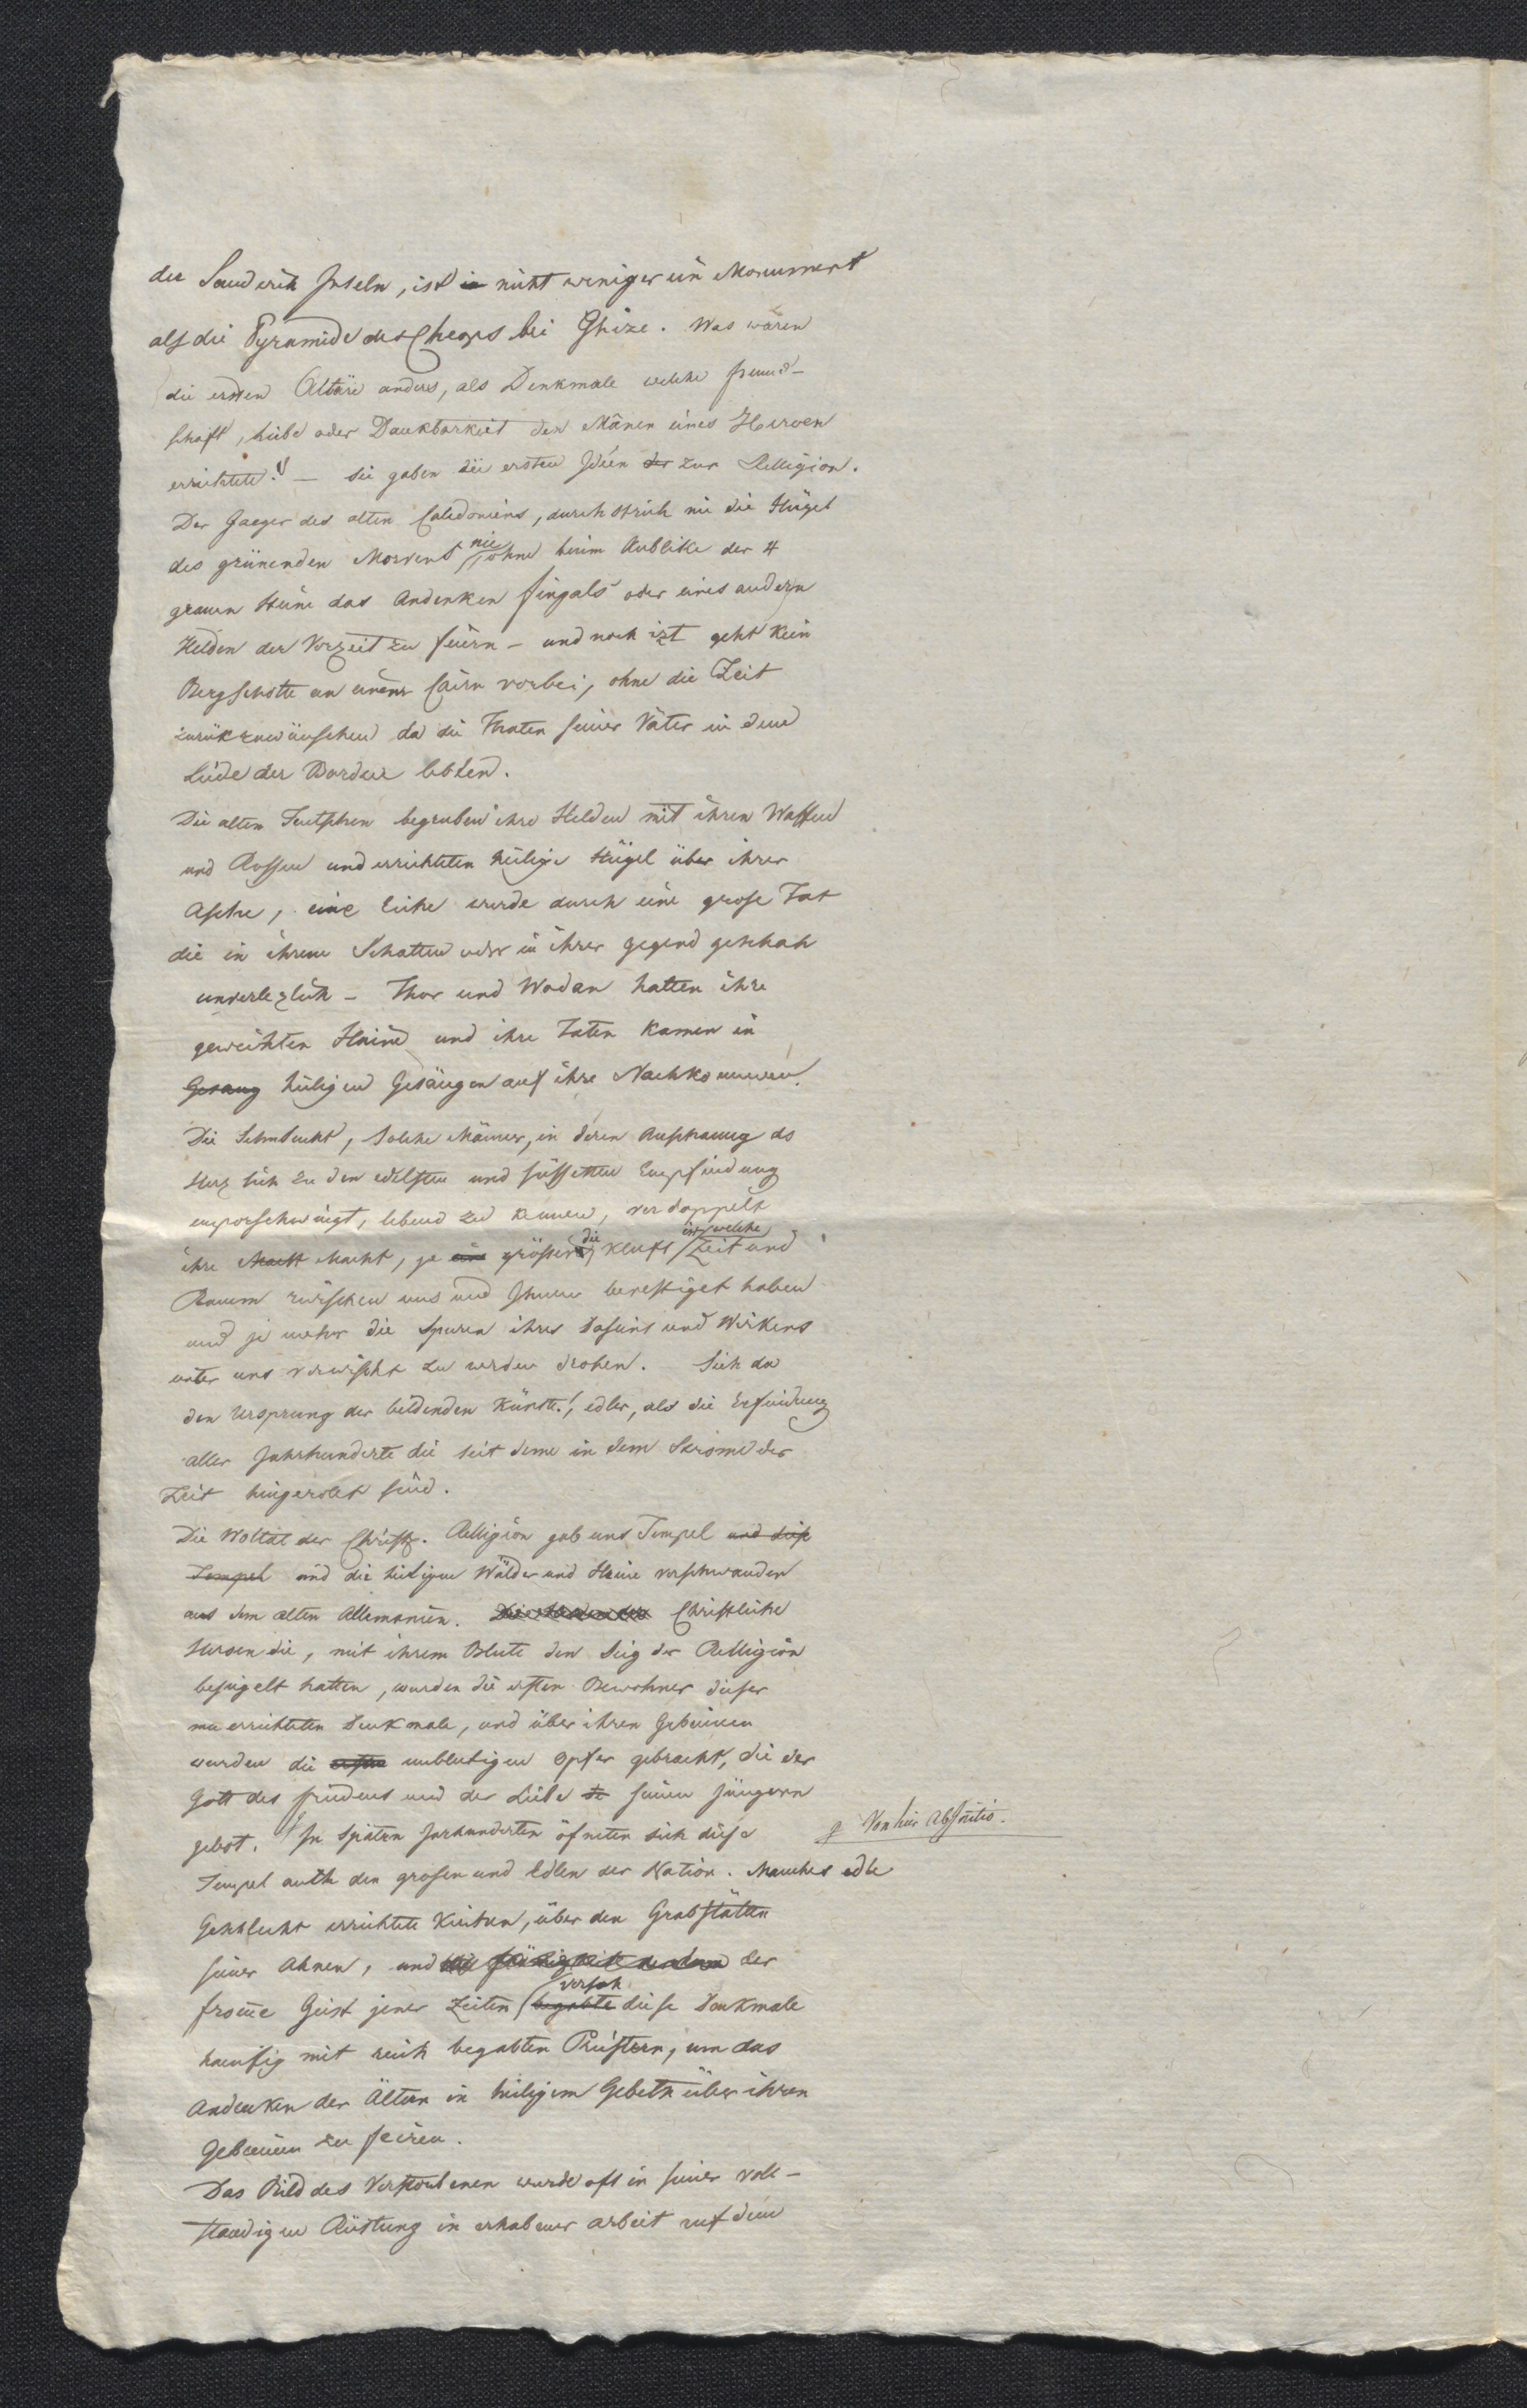 der Sandwich Inseln, ist nicht weniger ein Monument
als die Pyramide des Cheops bei Ghize. Was waren
die ersten Altäre anders, als Denkmale welche Freund-
schaft, Liebe oder Dankbarkeit den Mänen eines Heroen
errichtete? — Sie gaben die ersten Ideen der zur Relligion.
Der Jaeger des alten Caledoniens, durchstrich nie die Hügel
des grünenden Morvens nie ohne beim Anblike der 4
grauen Steine das Andenken Fingals oder eines andern
Helden der Vorzeit zu feiern – und noch izt geht kein
Bergschotte an einem Cairn vorbei, ohne die Zeit
zurükzuwünschen da die Thaten seiner Väter in dem
Liede der Barden lebten.
Die alten Teutschen begruben ihre Helden mit ihren Waffen
und Rossen und errichteten heilige Hügel über ihrer
Asche, eine Eiche wurde durch eine grose Tat
die in ihrem Schatten oder in ihrer Gegend geschah
unverlezlich – Thor und Wodan hatten ihre
geweihten Haine und ihre Taten kamen in
Gesang heiligen Gesängen auf ihre Nachkommen.
Die Sehnsucht, solche Männer, in deren Anschauung das
Herz sich zu den edelsten und süssesten Empfindung
emporschwingt, lebend zu kennen, verdoppelt
ihre Macht Macht, je eine grösser die Kluft ist, welche Zeit und
Raum zwischen uns und Ihnen bevestiget haben
und je mehr die Spuren ihres Daseins und Wirkens
unter uns verwischt zu werden drohen. Sieh da
den Ursprung der bildenden Künste!, edler, als die Erfindung
aller Jahrhunderte die seit deme in dem Strome der
Zeit hingerollt sind.
Die Woltat der Christl. Relligion gab uns Tempel und diese
Tempel und die heiligen Wälder und Haine verschwanden
aus dem alten Allemanien. Christliche
Heroen die, mit ihrem Blute den Sieg der Relligion
besiegelt hatten, wurden die ersten Bewohner dieser
neu errichteten Denkmale, und über ihren Gebeinen
wurden die ersten unblutigen Opfer gebracht, die der
Gott des Friedens und der Liebe seinen Jüngern
gebot. In spätern Jarhunderten öfneten sich diese
Von hier Absatis.
Tempel auch den grosen und Edlen der Nation. Manches edle
Geschlecht errichtete Kirchen, über den Grabstätten
seiner Ahnen, und der
fromme Geist jener Zeiten begabte versah diese Denkmale
haeufig mit reich begabten Priestern, um das
Andenken der Ältern in heiligem Gebete über ihren
Gebeinen zu feiren.
Das Bild des Verstorbenen wurde oft in seiner voll-
staendigen Rüstung in erhabener arbeit auf dem